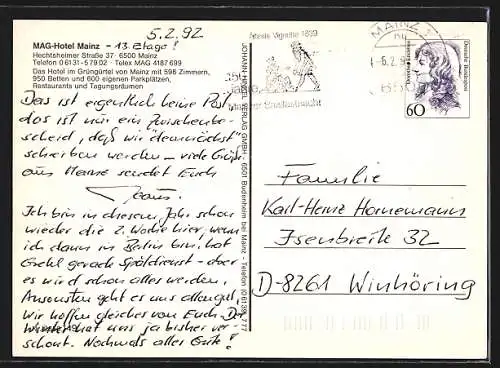 5.2.92
MAG-Hotel Mainz - 13. Etage!
Hechtsheimer Straße 37 · 6500 Mainz
Telefon 0 61 31-5 79 02 · Telex MAG 4187 699
Das Hotel im Grüngürtel von Mainz mit 598 Zimmern,
950 Betten und 600 eigenen Parkplätzen,
Restaurants und Tagungsräumen
Das ist eigentlich keine Post,
das ist nur ein Zwischenbe-
scheid, daß wir "demnächst"
schreiben werden – viele Grüße
aus Mainz sendet Euch
Ich bin in diesem Jahr schon
wieder die 2. Woche hier, wenn
ich dann in Berlin bin, hat
gerade Spätdienst – aber
es wird schon alles werden.
Ansonsten geht es uns allen gut,
Wir hoffen gleiches von Euch. Der
Winter hat uns ja bisher ver-
schont. Nochmals alles Gute!
JOHANN HOHMANN VERLAG GMBH · 6501 Budenheim bei Mainz · Telefon
älteste Vignette 1839
350
Mainzer
MAINZ 1
-5.2.9
6500
Deutsche Bundespost
60
Familie
Karl-Heinz Hornemann
Isenbreite 32
D-8261 Winhöring